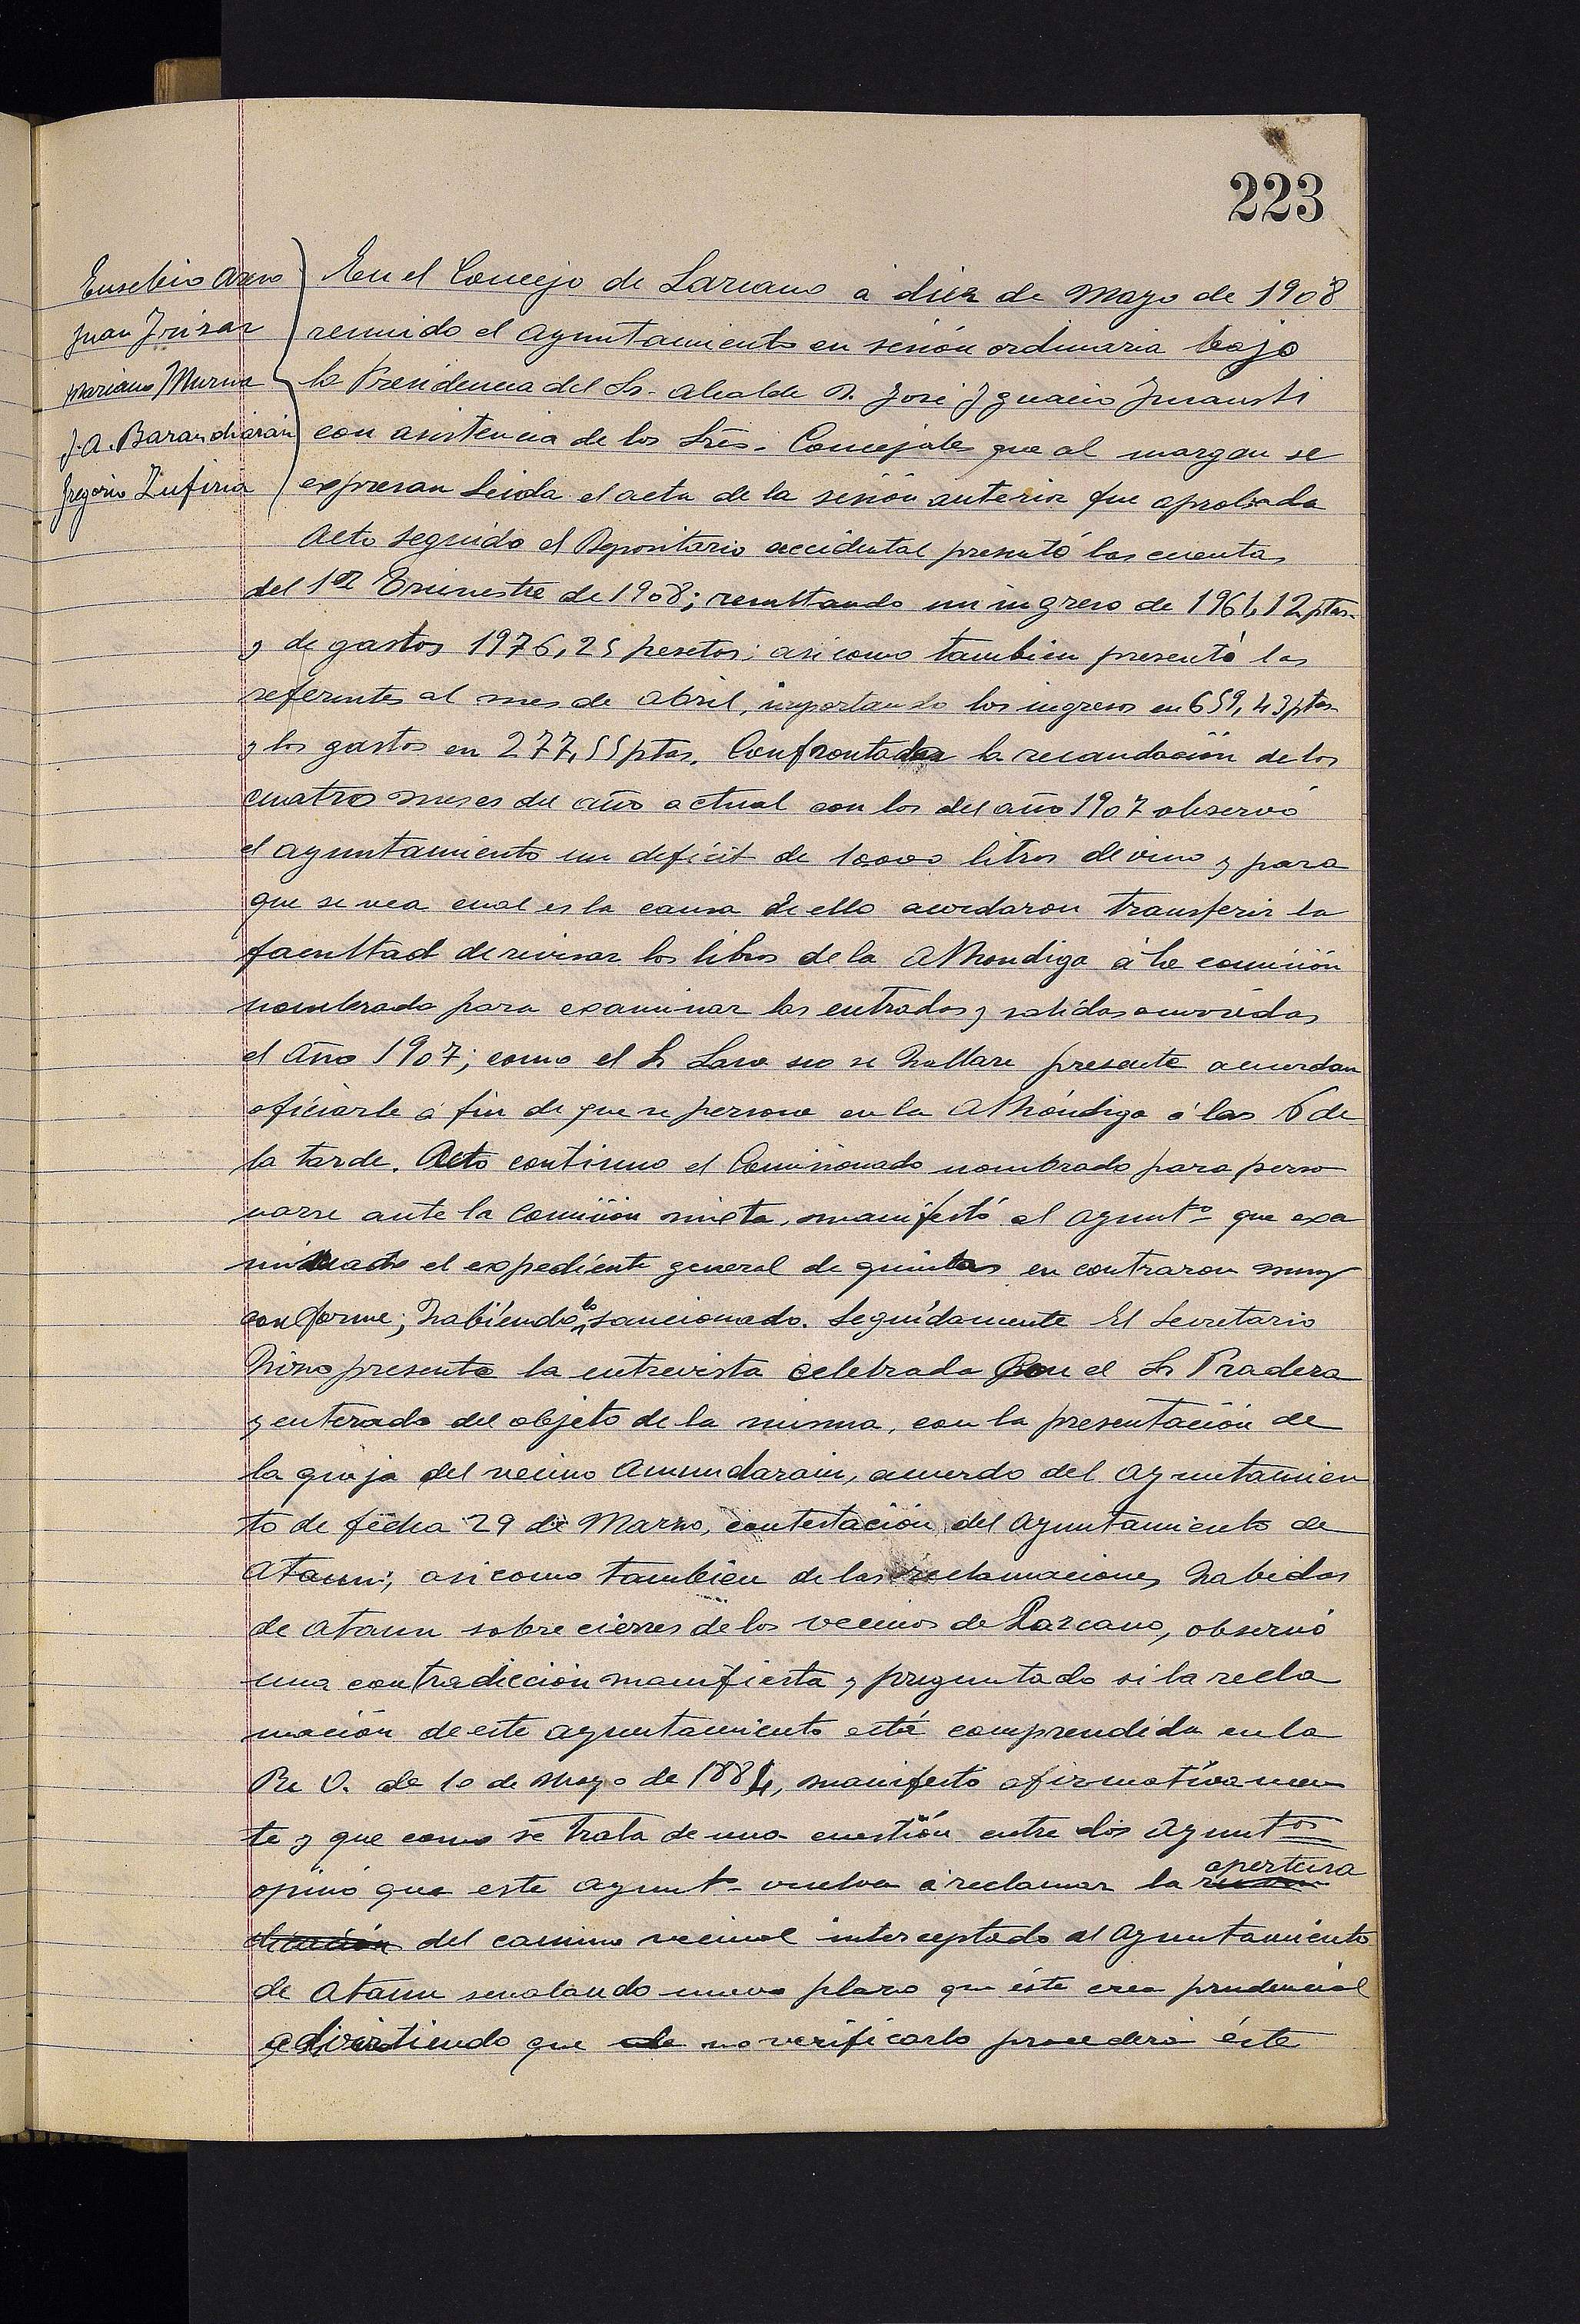 223
Eusebio
Juan Irizar
Mariano Murua
J. A. Barandiarán
Gregorio Zufiria
En el Concejo de Lazcano á diez de Mayo de 1908
reunido el Ayuntamiento en sesión ordinaria bajo
la Presidencia del Sr. Alcalde D. José Ignacio Insausti
con asistencia de los Sres. Concejales que al margen se
expresan Leida el acta de la sesión anterior fue aprobada
Acto seguido el Depositario accidental presentó las cuentas
del 1er Trimestre de 1908; resultando un ingreso de 1961,12 ptas.
y de gastos 1976,25 pesetas; asi como tambien presentó las
referentes al mes de Abril, importando los ingresos en 659,43 ptas
y los gastos en 277,55 ptas. Confrontada la recaudación de los
cuatro meses del año actual con los del año 1907 observó
el Ayuntamiento un deficit de 10000 litros de vino y para
que se vea cual es la causa de ello acordaron transferir la
facultad de revisar los libros de la Alhondiga á la comisión
nombrada para examinar las entradas y salidas ocurridas
el Año 1907; como el Sr Lasa no se hallare presente acuerdan
oficiarle á fin de que se persone en la Alhóndiga á las 6 de
la tarde. Acto continuo el Comisionado nombrado para perso
narse ante la Comisión mixta, manifestó al Ayunto que exa
minado el expediente general de quintas encontraron muy
conforme; habiendolo sancionado. Seguidamente El Secretario
hizo presente la entrevista celebrada con el Sr Pradera
y enterado del objeto de la misma, con la presentación de
la queja del vecino Amundarain, acuerdo del Ayuntamien
to de fecha 29 de Marzo, contestación del Ayuntamiento de
Ataun; asi como tambien de las reclamaciones habidas
de Ataun sobre cierres de los vecinos de Lazcano, observó
una contradicción manifiesta y preguntado si la recla
mación de este ayuntamiento está comprendida en la
Rl O. de 10 de Mayo de 1884, manifestó afirmativamen
te y que como se trata de una cuestión entre dos Ayuntos
opinó que este Ayunto vuelva á reclamar la apertura
del camino vecinal interceptado al Ayuntamiento
de Ataun senalando nuevo plazo que éste crea prudencial
advirtiendo que de no verificarlo procederá éste